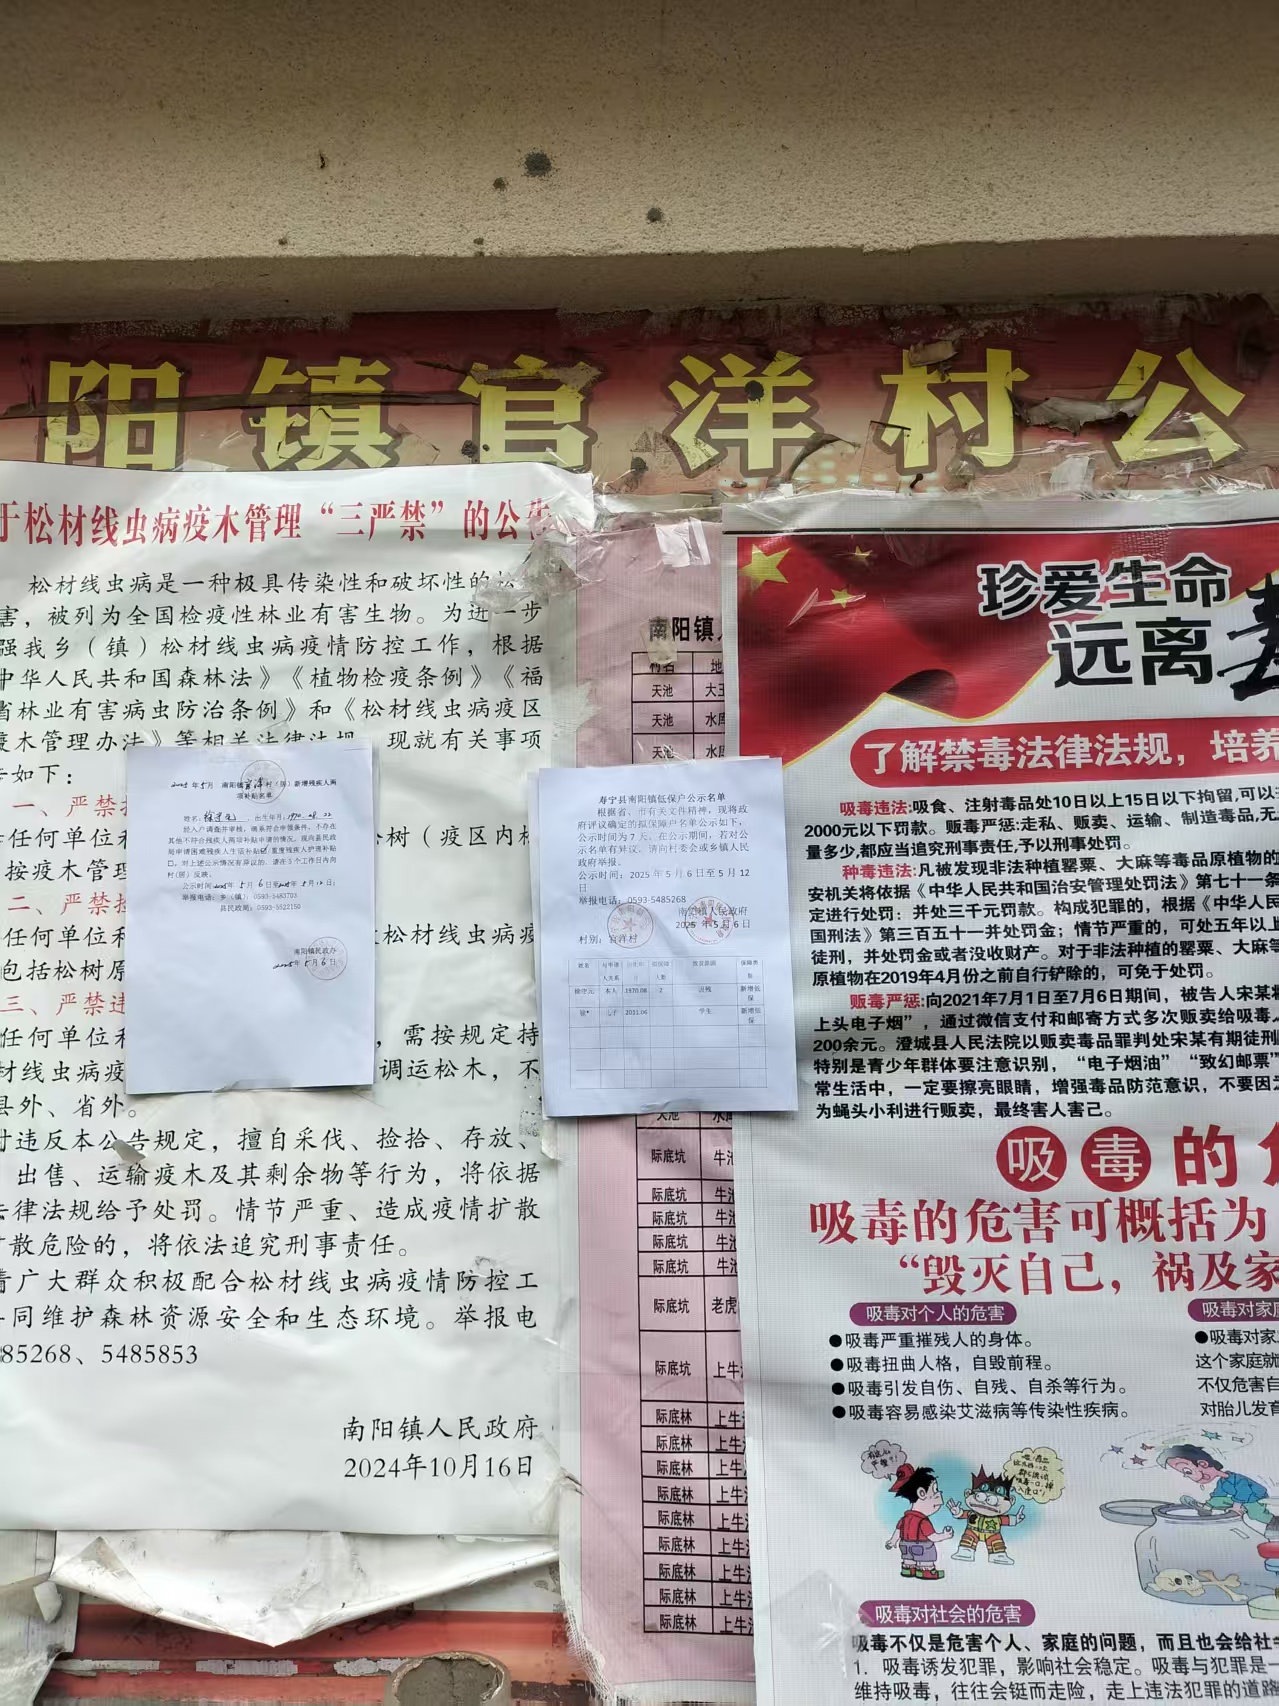 阳镇官洋村公
于松材线虫病疫木管理“三严禁”的公告
松材线虫病是一种极具传染性和破坏性的松
害，被列为全国检疫性林业有害生物。为进一步
强我乡（镇）松材线虫病疫情防控工作，根据
中华人民共和国森林法》《植物检疫条例》《福
省林业有害病虫防治条例》和《松材线虫病疫区
疫木管理办法》等相关法律法规，现就有关事项
告如下：
一、严禁
任何单位和
松树（疫区内松
按疫木管理
二、严禁捡
任何单位和
松材线虫病疫
包括松树原
三、严禁违
任何单位和
，需按规定持
材线虫病疫
调运松木，不
县外、省外。
对违反本公告规定，擅自采伐、捡拾、存放、
出售、运输疫木及其剩余物等行为，将依据
法律法规给予处罚。情节严重、造成疫情扩散
扩散危险的，将依法追究刑事责任。
请广大群众积极配合松材线虫病疫情防控工
共同维护森林资源安全和生态环境。举报电
85268、5485853
南阳镇人民政府
2024年10月16日
2025年5月 南阳镇官洋村（居）新增残疾人两
项补贴名单
姓名：，出生年月：1970.08.22
经入户调查并审核，确系符合申领条件，不存在
其他不符合残疾人两项补贴申请的情况，现向县民政
局申请困难残疾人生活补贴☑/重度残疾人护理补贴
□。对上述公示情况有异议的，请在5个工作日内向
村(居)反映。
公示时间2025年5月6日至2025年5月12日；
举报电话：乡（镇）：0593-5483703
县民政局：0593-5522150
南阳镇民政办
2025年5月6日
寿宁县南阳镇低保户公示名单
根据省、市有关文件精神，现将政
府评议确定的拟保障户名单公示如下，
公示时间为7天。在公示期间，若对公
示名单有异议，请向村委会或乡镇人民
政府举报。
公示时间：2025年5月6日至5月12
日
举报电话：0593-5485268
南阳镇人民政府
2025年5月6日
村别：官洋村
姓名 与申请人关系 保障人数 致贫原因 保障类别
本人 1970.08 2 因残 新增低保
徐* 儿子 2011.06 学生 新增低保
南阳镇
村名 地
天池 大王
天池 水库
天池 水库
天池 水库
际底坑 牛池
际底坑 牛池
际底坑 牛池
际底坑 牛池
际底坑 牛池
际底坑 老虎
际底坑 上牛
际底林 上牛
际底林 上牛
际底林 上牛
际底林 上牛
际底林 上牛
际底林 上牛
际底林 上牛
际底林 上牛
际底林 上牛
珍爱生命
远离毒
了解禁毒法律法规，培养
吸毒违法:吸食、注射毒品处10日以上15日以下拘留,可以
2000元以下罚款。贩毒严惩:走私、贩卖、运输、制造毒品,无
量多少,都应当追究刑事责任,予以刑事处罚。
种毒违法:凡被发现非法种植罂粟、大麻等毒品原植物的
安机关将依据《中华人民共和国治安管理处罚法》第七十一条
定进行处罚：并处三千元罚款。构成犯罪的，根据《中华人民
国刑法》第三百五十一并处罚金；情节严重的，可处五年以上
徒刑，并处罚金或者没收财产。对于非法种植的罂粟、大麻等
原植物在2019年4月份之前自行铲除的，可免于处罚。
贩毒严惩:向2021年7月1日至7月6日期间，被告人宋某将
上头电子烟”，通过微信支付和邮寄方式多次贩卖给吸毒人
200余元。澄城县人民法院以贩卖毒品罪判处宋某有期徒刑
特别是青少年群体要注意识别，“电子烟油”“致幻邮票”
常生活中，一定要擦亮眼睛，增强毒品防范意识，不要因为
为蝇头小利进行贩卖，最终害人害己。
吸毒的危
吸毒的危害可概括为
“毁灭自己，祸及家
吸毒对个人的危害
●吸毒严重摧残人的身体。
●吸毒扭曲人格，自毁前程。
●吸毒引发自伤、自残、自杀等行为。
●吸毒容易感染艾滋病等传染性疾病。
吸毒对家庭
●吸毒对家
这个家庭就
不仅危害自
对胎儿发育
吸毒对社会的危害
吸毒不仅是危害个人、家庭的问题，而且也会给社会
1．吸毒诱发犯罪，影响社会稳定。吸毒与犯罪是一
维持吸毒，往往会铤而走险，走上违法犯罪的道路